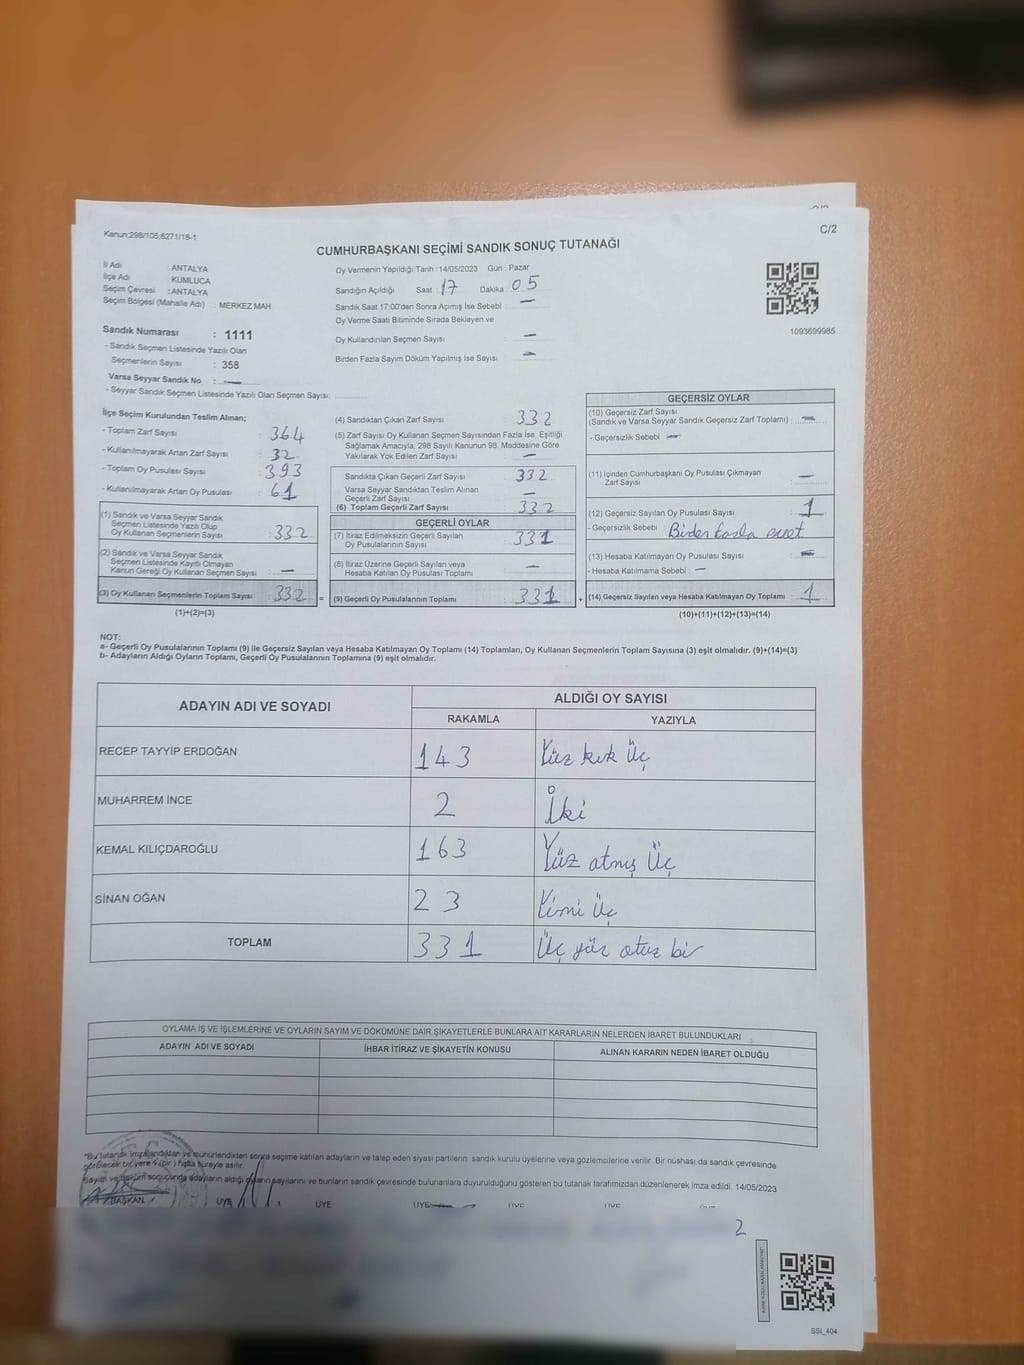 Kanun;298/105;6271/18-1
C/2
CUMHURBAŞKANI SEÇİMİ SANDIK SONUÇ TUTANAĞI
İl Adı : ANTALYA
İlçe Adı : KUMLUCA
Seçim Çevresi : ANTALYA
Seçim Bölgesi (Mahalle Adı) MERKEZ MAH.
Sandık Numarası : 1111
- Sandık Seçmen Listesinde Yazılı Olan
Seçmenlerin Sayısı : 358
Varsa Seyyar Sandık No : —
- Seyyar Sandık Seçmen Listesinde Yazılı Olan Seçmen Sayısı:
Oy Vermenin Yapıldığı Tarih :14/05/2023 Gün : Pazar
Sandığın Açıldığı Saat : 17 Dakika : 05
Sandık Saat 17:00'den Sonra Açımış İse Sebebi : —
Oy Verme Saati Bitiminde Sırada Bekleyen ve
Oy Kullandırılan Seçmen Sayısı : —
Birden Fazla Sayım Döküm Yapılmış İse Sayısı : —
1093699985
İlçe Seçim Kurulundan Teslim Alınan;
- Toplam Zarf Sayısı : 364
- Kullanılmayarak Artan Zarf Sayısı : 32
- Toplam Oy Pusulası Sayısı : 393
- Kullanılmayarak Artan Oy Pusulası : 61
(1) Sandık ve Varsa Seyyar Sandık
Seçmen Listesinde Yazılı Olup
Oy Kullanan Seçmenlerin Sayısı : 332
(2) Sandık ve Varsa Seyyar Sandık
Seçmen Listesinde Kayıtlı Olmayan
Kanun Gereği Oy Kullanan Seçmen Sayısı : —
(3) Oy Kullanan Seçmenlerin Toplam Sayısı : 332
(1)+(2)=(3)
(4) Sandıktan Çıkan Zarf Sayısı : 332
(5) Zarf Sayısı Oy Kullanan Seçmen Sayısından Fazla İse, Eşitliği
Sağlamak Amacıyla, 298 Sayılı Kanunun 98. Maddesine Göre
Yakılarak Yok Edilen Zarf Sayısı : —
Sandıkta Çıkan Geçerli Zarf Sayısı : 332
Varsa Seyyar Sandıktan Teslim Alınan
Geçerli Zarf Sayısı : —
(6) Toplam Geçerli Zarf Sayısı : 332
GEÇERLİ OYLAR
(7) İtiraz Edilmeksizin Geçerli Sayılan
Oy Pusulalarının Sayısı : 331
(8) İtiraz Üzerine Geçerli Sayılan veya
Hesaba Katılan Oy Pusulası Toplamı : —
= (9) Geçerli Oy Pusulalarının Toplamı : 331
GEÇERSİZ OYLAR
(10) Geçersiz Zarf Sayısı
(Sandık ve Varsa Seyyar Sandık Geçersiz Zarf Toplamı) : —
- Geçersizlik Sebebi : —
(11) İçinden Cumhurbaşkanı Oy Pusulası Çıkmayan
Zarf Sayısı : —
(12) Geçersiz Sayılan Oy Pusulası Sayısı : 1
- Geçersizlik Sebebi : Birden fazla evet
(13) Hesaba Katılmayan Oy Pusulası Sayısı : —
- Hesaba Katılmama Sebebi : —
+ (14) Geçersiz Sayılan veya Hesaba Katılmayan Oy Toplamı : 1
(10)+(11)+(12)+(13)=(14)
NOT:
a- Geçerli Oy Pusulalarının Toplamı (9) ile Geçersiz Sayılan veya Hesaba Katılmayan Oy Toplamı (14) Toplamları, Oy Kullanan Seçmenlerin Toplam Sayısına (3) eşit olmalıdır. (9)+(14)=(3)
b- Adayların Aldığı Oyların Toplamı, Geçerli Oy Pusulalarının Toplamına (9) eşit olmalıdır.
ADAYIN ADI VE SOYADI ALDIĞI OY SAYISI
RAKAMLA YAZIYLA
RECEP TAYYİP ERDOĞAN 143 Yüz kırk Üç
MUHARREM İNCE 2 İki
KEMAL KILIÇDAROĞLU 163 Yüz atmış Üç
SİNAN OĞAN 23 Yirmi Üç
TOPLAM 331 Üç yüz otuz bir
OYLAMA İŞ VE İŞLEMLERİNE VE OYLARIN SAYIM VE DÖKÜMÜNE DAİR ŞİKAYETLERLE BUNLARA AİT KARARLARIN NELERDEN İBARET BULUNDUKLARI
ADAYIN ADI VE SOYADI İHBAR İTİRAZ VE ŞİKAYETİN KONUSU ALINAN KARARIN NEDEN İBARET OLDUĞU
"Bu tutanak imzalandıktan ve mühürlendikten sonra seçime katılan adayların ve talep eden siyasi partilerin sandık kurulu üyelerine veya gözlemcilerine verilir. Bir nüshası da sandık çevresinde
görülecek bir yere 1 (bir) hafta süreyle asılır.
Sayım ve döküm sonucunda adayların aldığı oyların sayılarını ve bunların sandık çevresinde bulunanlara duyurulduğunu gösteren bu tutanak tarafımızdan düzenlenerek imza edildi. 14/05/2023
BAŞKAN ÜYE ÜYE ÜYE ÜYE ÜYE ÜYE
SSİ_404